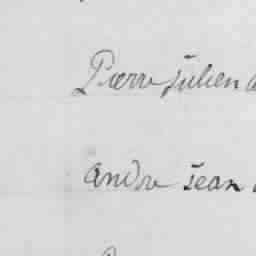 Pierre Julien
andre jean